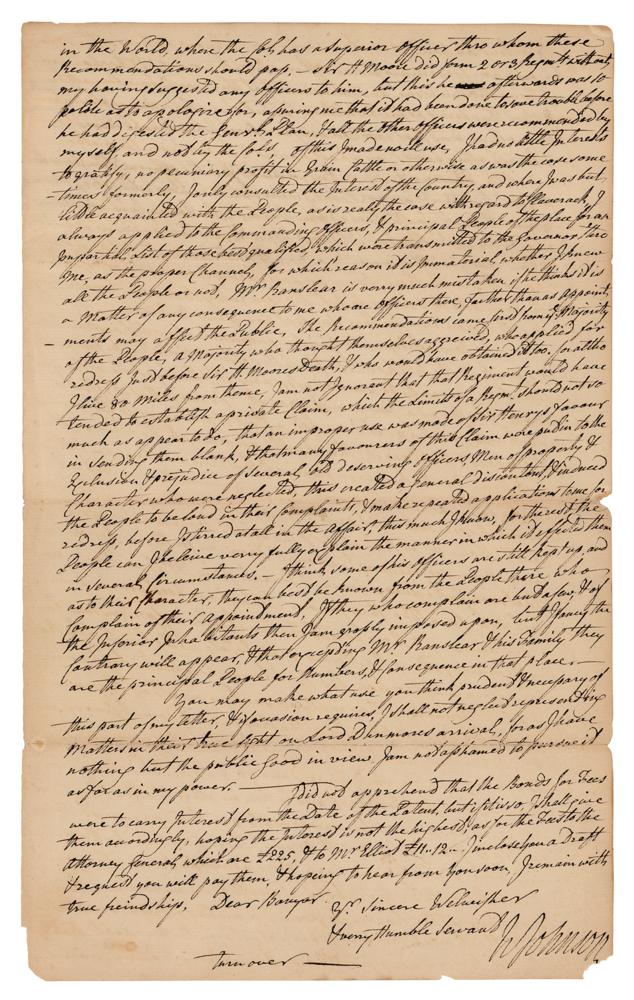 in the World, where the Col. has a superior officer thro whom these
Recommendations should pass. — Sir H Moore did form 2 or 3 Regmts without
my having suggested any officers to him, but this he afterwards was so
polite as to apologize for, assuring me that it had been done to save trouble before
he had digested the Genrl. Plan, & all the other officers were recommended by
myself, and not by the Cols. of this I made no ill use, I had no little Interests
to gratify, no pecuniary profit in Grain Cattle or otherwise as was the case some
-times formerly, I only consulted the Interest of the Country, and where I was but
little acquainted with the People, as is really the case with regard to Claverack, I
always applied to the Commanding Officers, & principal People of the place for an
impartial List of those best qualified, which were transmitted to the Governor, thro
me, as the proper Channel, for which reason it is Immaterial whether I knew
all the People or not, Mr. Ranslear is very much mistaken if he thinks it is
a Matter of any consequence to me who are officers there, further than as Appoint
- ments may affect the Public, The Recommendations came first from a Majority
of the People, a Majority who thought themselves aggrieved, who applied for
redress Just before Sir H Moores Death, & who would have obtained it too, for altho
I live 80 Miles from thence, I am not Ignorant that that Regiment would have
tended to establish a private Claim, which the Limits of a Regmt. should not so
much as appear to do, that an improper use was made of Sir Henrys favour
in sending them blank, & that many favourers of this Claim were put in to the
Exclusion & prejudice of several old deserving officers Men of property &
Character who were neglected, this created a general discontent, & induced
the People to be loud in their Complaints, & make repeated applications to me for
redress, before I stirred at all in the Affair, this much I know, for the rest the
People can I beleive verry fully explain the manner in which it affected them
in several Circumstances. — I think some of his officers are still kept up, and
as to their Character, they can best be known from the People there who
Complain of their appointment, If they who complain are but a few, & of
the Inferior Inhabitants then I am grossly imposed upon, but I fancy the
Contrary will appear, & that excepting Mr Ranslear & his Family they
are the principal People for Numbers, & Consequence in that place. —
You may make what use you think prudent & necessary of
this part of my letter, & if occasion requires, I shall not neglect representing
Matters in their true light on Lord Dunmores arrival, for as I have
nothing but the public Good in view, I am not ashamed to pursue it
as far as in my power. — I did not apprehend that the Bonds for Fees
were to carry Interest from the Date of the Patent, but if it is so, I shall give
them accordingly, hoping the Interest is not the highest, as for the Fees to the
Attorney General which are £225, & to Mr Elliot £11..12.. I inclose you a Draft
& request you will pay them & hoping to hear from you soon, I remain with
true freindships, Dear Banyar
Yr. Sincere Welwisher
& verry Humble Servant
W Johnson
turn over —